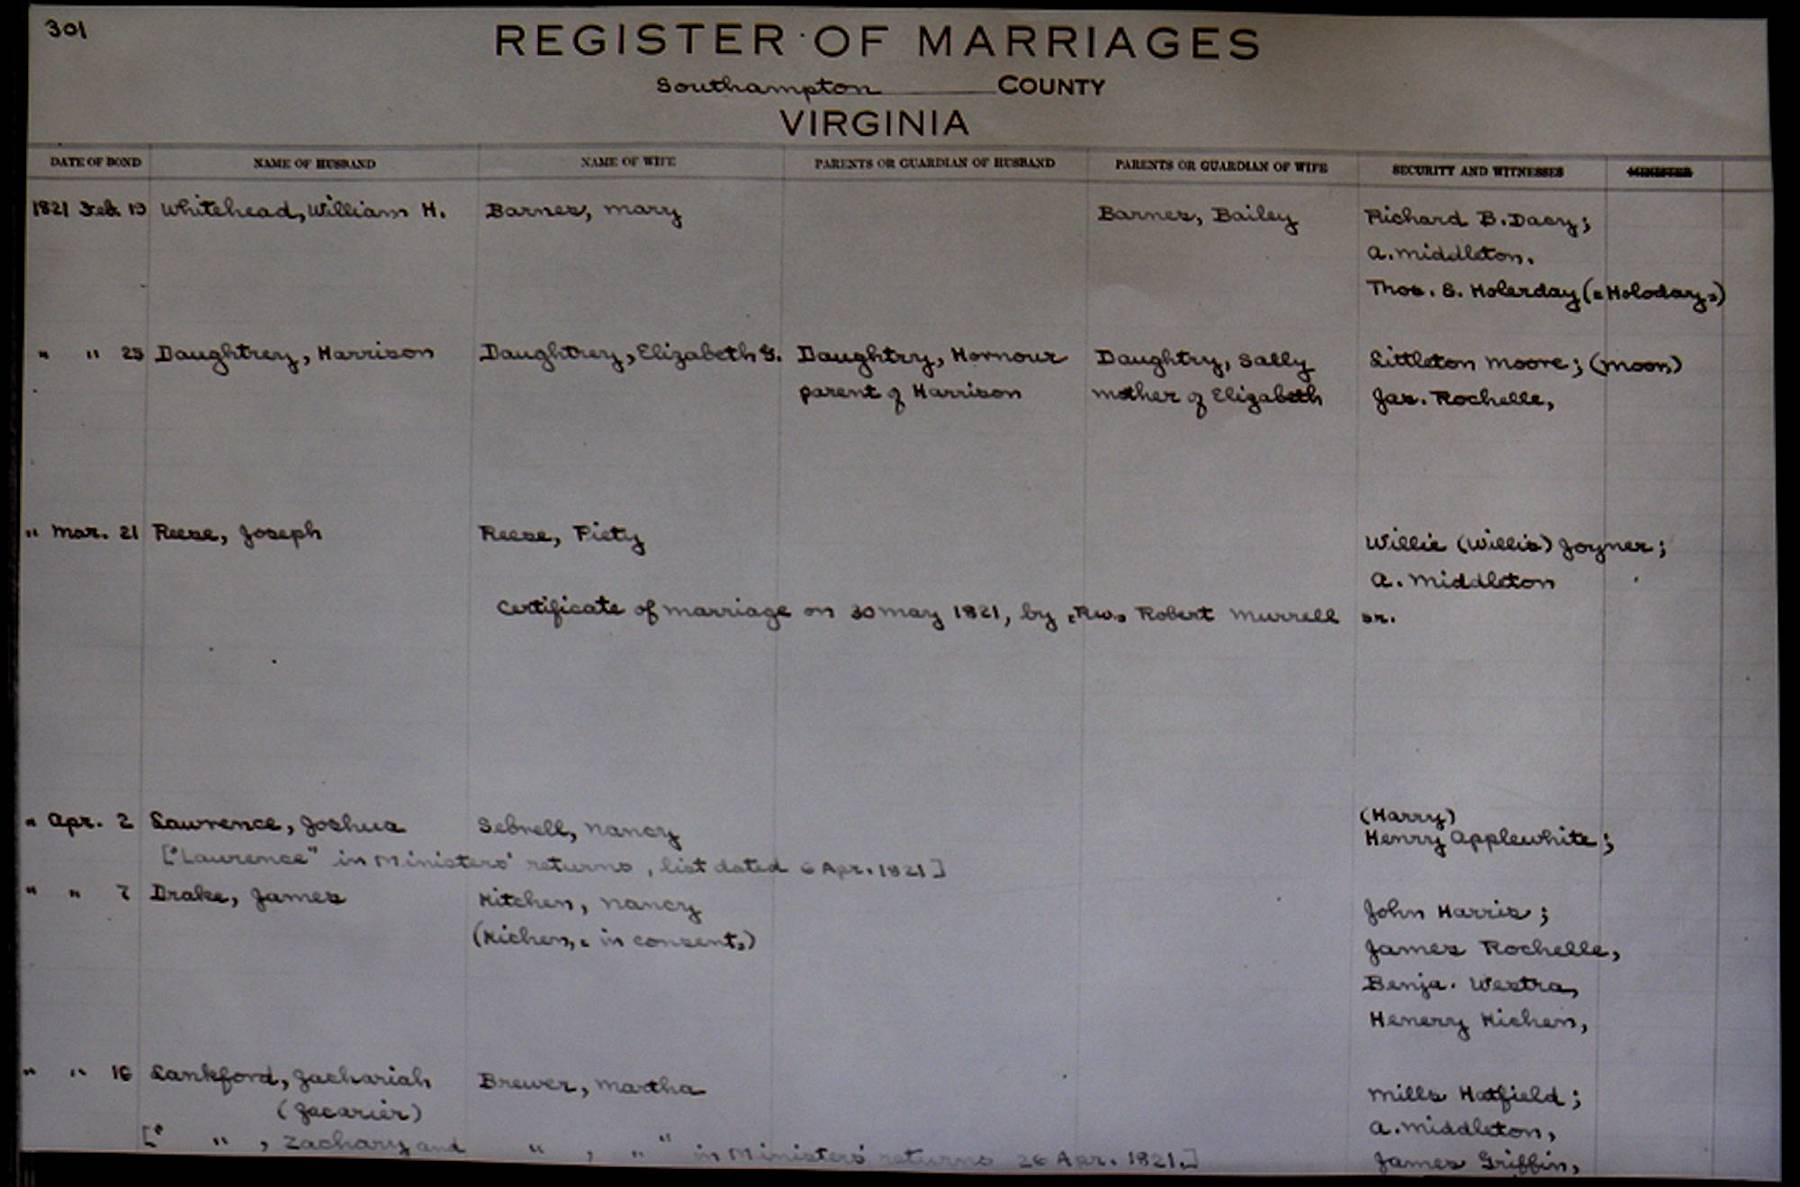 301
REGISTER OF MARRIAGES
Southampton COUNTY
VIRGINIA
DATE OF BOND NAME OF HUSBAND NAME OF WIFE PARENTS OR GUARDIAN OF HUSBAND PARENTS OR GUARDIAN OF WIFE SECURITY AND WITNESSES MINISTER
1821 Feb. 19 Whitehead, William H. Barnes, Mary Barnes, Bailey Richard B. Dacy;
A. Middleton.
Thos. S. Holerday ("Holoday")
" " 25 Daughtrey, Harrison Daughtrey, Elizabeth G. Daughtry, Hornour Daughtry, Sally Littleton Moore; (Moon)
parent of Harrison mother of Elizabeth Jas. Rochelle,
" Mar. 21 Reese, Joseph Reese, Piety Willie (Willis) Joyner;
A. Middleton
Certificate of marriage on 30 May 1821, by [Rev.] Robert Murrell sr.
(Harry)
" Apr. 2 Lawrence, Joshua Sebrell, Nancy Henry Applewhite;
["Laurence" in Ministers' returns, list dated 6 Apr. 1821]
" " 7 Drake, James Kitchen, Nancy John Harris;
(Kichen, in consent,) James Rochelle,
Benja. Westra,
Henery Kichen,
" " 16 Lankford, Zachariah Brewer, Martha Mills Hatfield;
(Zacarier) A. Middleton,
[" " , Zachary and " , " " in Ministers' returns 26 Apr. 1821.] James Griffin,